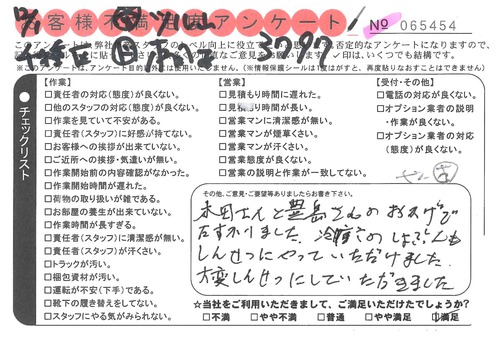 お客様不満足度アンケート
No 065454
3797
チェックリスト
【作業】
□責任者の対応(態度)が良くない。
□他のスタッフの対応(態度)が良くない。
□作業を見ていて不安がある。
□責任者(スタッフ)に好感が持てない。
□お客様への挨拶が出来ていない。
□ご近所への挨拶・気遣いが無い。
□作業開始前の内容確認がなかった。
□作業開始時間が遅れた。
□荷物の取り扱いが雑である。
□お部屋の養生が出来ていない。
□作業時間が長すぎる。
□責任者(スタッフ)に清潔感が無い。
□責任者(スタッフ)が汗くさい。
□トラックが汚い。
□梱包資材が汚い。
□運転が不安(下手)である。
□靴下の履き替えをしてない。
□スタッフにやる気がみられない。
【営業】
□見積もり時間に遅れた。
□見積もり時間が長い。
□営業マンに清潔感が無い。
□営業マンが煙草くさい。
□営業マンが汗くさい。
□営業態度が良くない。
□営業の説明と作業が一致してない。
【受付・その他】
□電話の対応が良くない。
□オプション業者の説明
・作業が良くない。
□オプション業者の対応
(態度)が良くない。
その他、ご意見・ご要望等ありましたらお書き下さい。
本田さんと豊島さんのおかげで
たすかりました。冷暖房のしょぶんも
しんせつにやっていただけました。
大変しんせつにしていただきました
☆当社をご利用いただきまして、ご満足いただけたでしょうか?
□不満 □やや不満 □普通 □やや満足 □満足